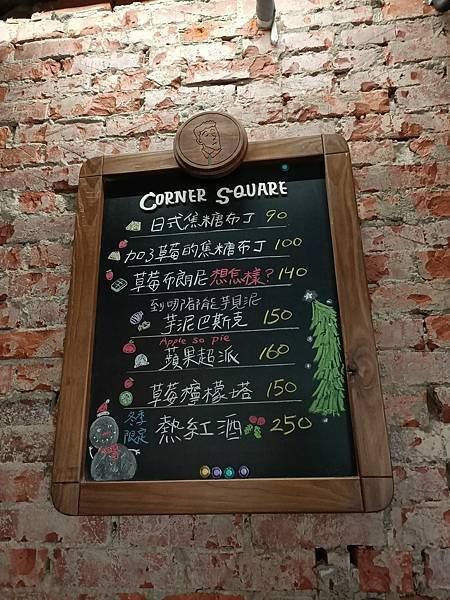 CORNER SQUARE
日式焦糖布丁 90
加了草莓的焦糖布丁 100
草莓布朗尼 想怎樣? 140
到哪都能芋見泥
芋泥巴斯克 150
Apple so pie
蘋果超派 160
草莓檸檬塔 150
冬季限定 熱紅酒 250